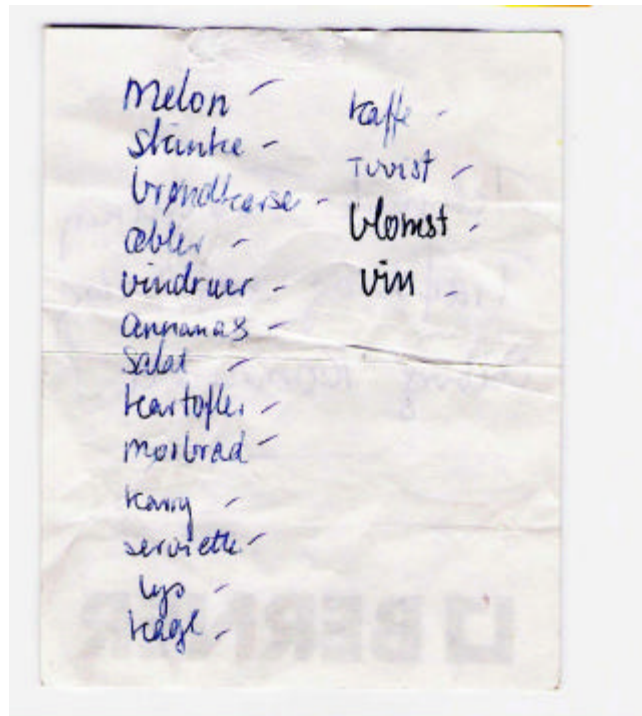 melon
skinke
brøndkarse
æbler
vindruer
annanas
salat
kartofler
mørbrad
karry
serviette
lys
kage
kaffe
Twist
blomst
vin